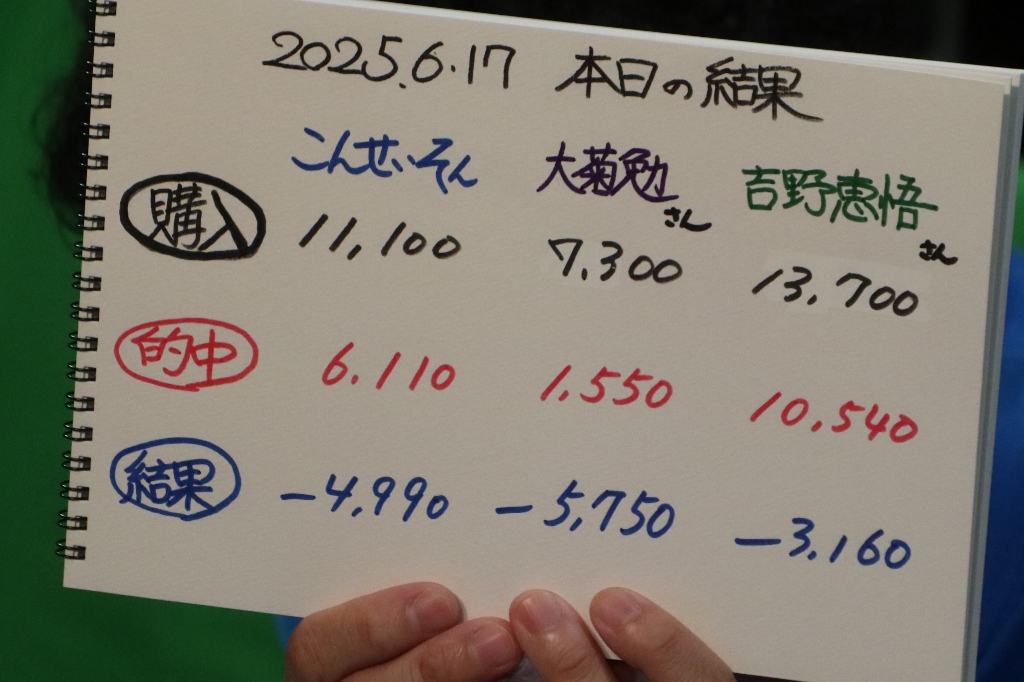 2025.6.17 本日の結果
こんせいそん 大菊勉さん 吉野恵悟さん
購入 11,100 7,300 13,700
的中 6.110 1.550 10,540
結果 -4,990 -5,750 -3,160